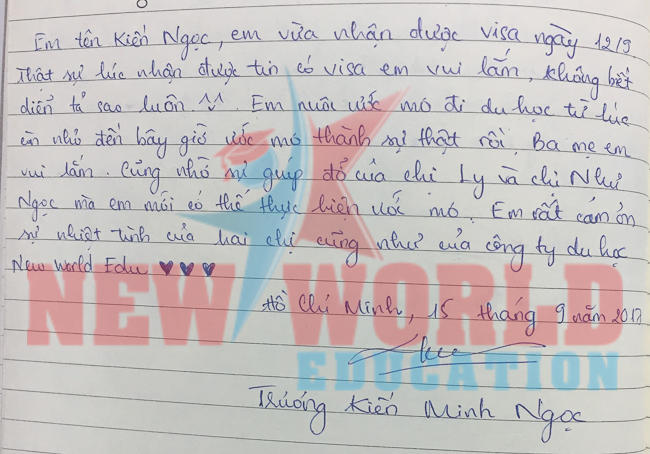 Em tên Kiến Ngọc, em vừa nhận được visa ngày 12/9
Thật sự lúc nhận được tin có visa em vui lắm, không biết
diễn tả sao luôn ^^. Em nuôi ước mơ đi du học từ lúc
còn nhỏ đến bây giờ ước mơ thành sự thật rồi. Ba mẹ em
vui lắm. Cũng nhờ sự giúp đỡ của chị Ly và chị Như
Ngọc mà em mới có thể thực hiện ước mơ. Em rất cám ơn
sự nhiệt tình của hai chị cũng như của công ty du học
New World Edu ♥ ♥ ♥
Hồ Chí Minh, 15 tháng 9 năm 2017
Trương Kiến Minh Ngọc
NEW WORLD
EDUCATION